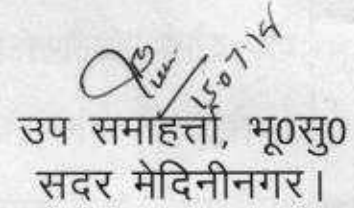 15.07.14
उप समाहर्त्ता, भू0सु0
सदर मेदिनीनगर।